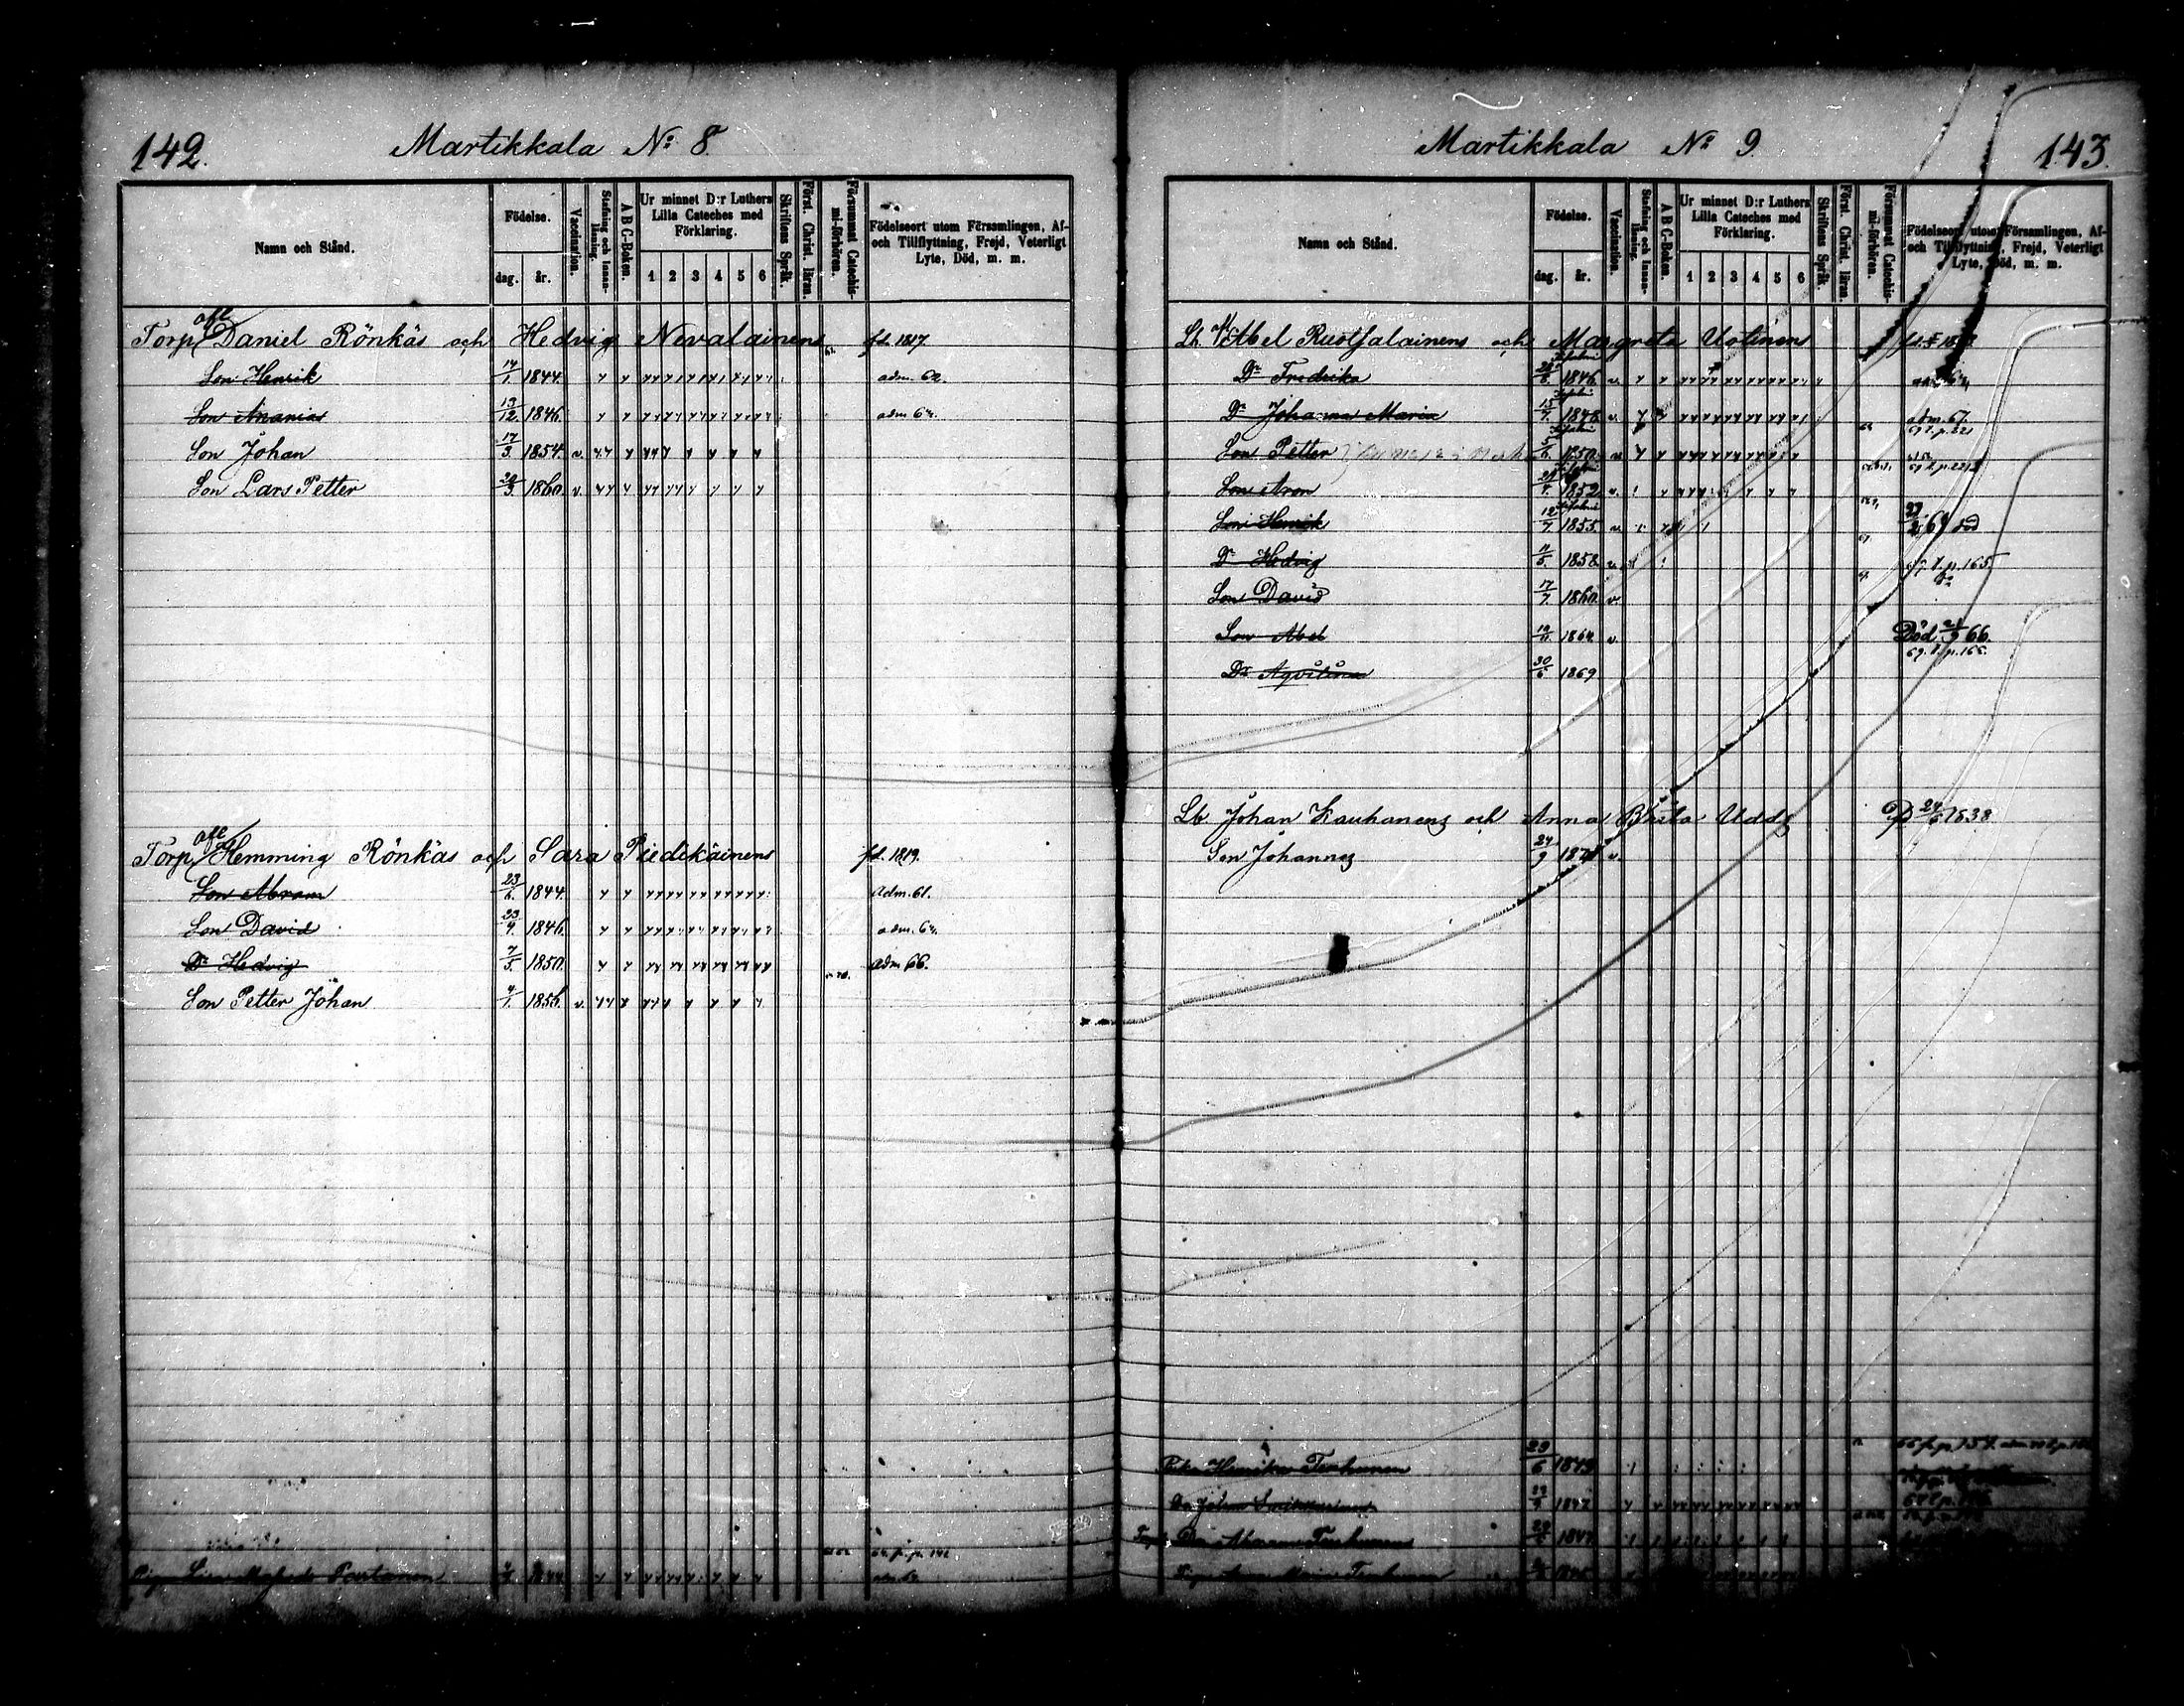 142.
Martikkala No 8.
Namn och Stånd.
Födelse.
dag. år.
Vaccination.
Stafning och Innan-läsning.
A B C-Boken.
Ur minnet D:r Luthers Lilla Cateches med Förklaring.
1 2 3 4 5 6
Skriftens Språk.
Först. Christ. läran.
Försummat Catechis-mi-förhören.
Födelseort utom Församlingen, Af- och Tillflyttning, Frejd, Veterligt Lyte, Död, m. m.
Torp afl Daniel Rönkäs och Hedvig Nevalainens fl. 1817.
Son Henrik 14/1 1844. adm. 62.
Son Ananias 13/12 1846. adm 64.
Son Johan 17/3 1854. v.
Son Lars Petter 20/3 1860. v.
Torp afl Hemming Rönkäs och Sara Piedikäinens fl. 1819.
Son Abram 23/6. 1844. Adm. 61.
Son David 23/9. 1846. adm. 64.
Dr Hedvig 7/5. 1850. adm 66.
Son Petter Johan 4/1. 1856. v.
Partanen 1844
Martikkala No 9.
143.
Namn och Stånd.
Födelse.
dag. år.
Vaccination.
Stafning och Innan-läsning.
A B C-Boken.
Ur minnet D:r Luthers Lilla Cateches med Förklaring.
1 2 3 4 5 6
Skriftens Språk.
Först. Christ. läran.
Försummat Catechis-mi-förhören.
Födelseort utom Församlingen, Af- och Tillflyttning, Frejd, Veterligt Lyte, Död, m. m.
Abel Ruotsalainens och Margreta Uotinens
Dr Fredrika 1846. v.
Dr Johanna Maria 15/7 1848. v. adm. 67.
Son Petter 5/6 1850. v.
Son Aron 1852. v.
Son Henrik 12/7 1855. v. 69 död
Dr Hedvig 11/5. 1858. v. p. 165
Son David 17/7. 1860. v.
Son Abel 19/11 1864 v. Död 66.
Dr Aqvilina 30/6 1869 69. p. 166.
Lb Johan Kauhanens och Anna Brita Uddz 24/6 1838
Son Johannes 24/9 v.
Henrika Tenhunen 29/6 1849
1847
Abram Tenhunen 1847
Tenhunen